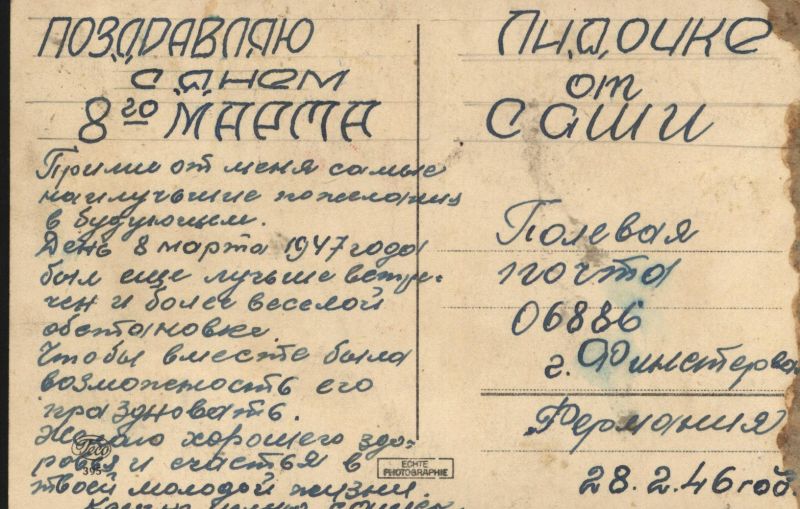 ПОЗДРАВЛЯЮ
С ДНЕМ
8го МАРТА
Прими от меня самые
наилучшие пожелания
в будующем.
День 8 марта 1947 года
был еще лучше встре-
чен и более веселой
обстановке.
Чтобы вместе была
возможность его
праздновать.
Желаю хорошего здо-
ровья и счастья в
твоей молодой жизни.
ЛИДОЧКЕ
от
САШИ
Полевая
почта
06886
г. Финстерва
Германия
28.2.46 год
395
ECHTE
PHOTOGRAPHIE